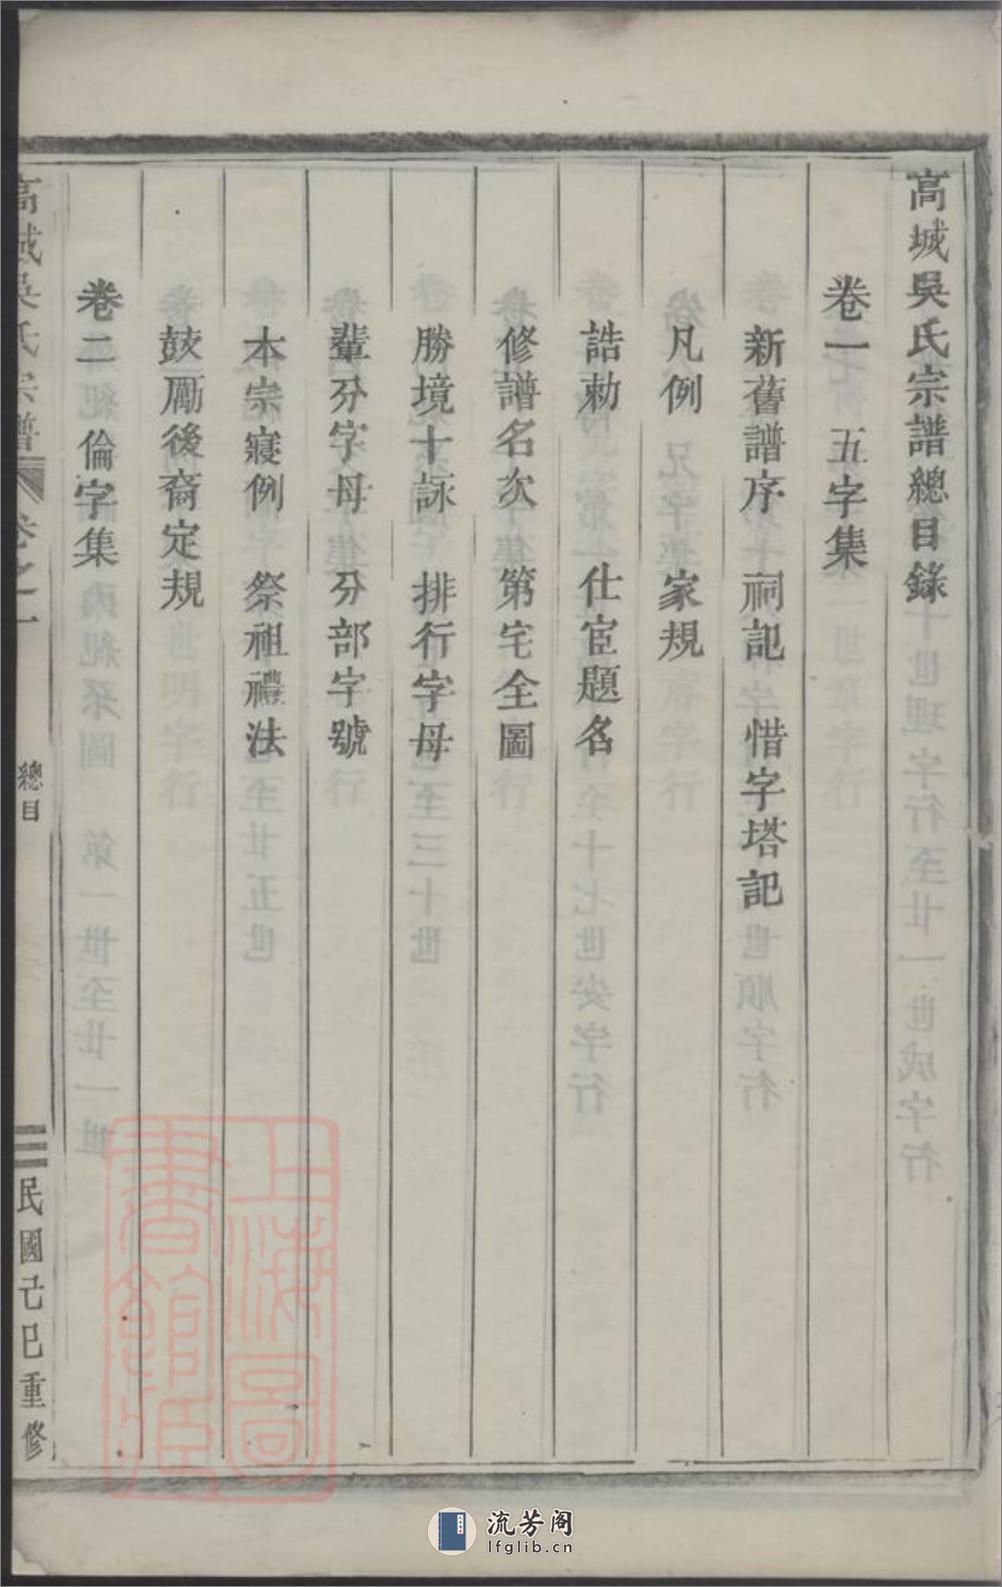 高城吳氏宗譜總目錄
卷一 五字集
新舊譜序 祠記 惜字塔記
凡例 家規
誥勅 仕宦題名
修譜名次 第宅全圖
勝境十詠 排行字母
輩分字母 分部字號
本宗寢例 祭祖禮法
鼓勵後裔定規
卷二 倫字集
高城吳氏宗譜 卷之一 總目 民國己巳重修
上海圖書館藏
流芳阁
lfglib.cn